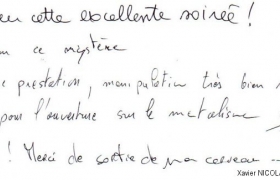 en cette excellente soirée !
ce mystère
prestation, manipulation très bien
pour l'ouverture sur le mentalisme
! Merci de sortir de mon cerveau ...
Xavier NICOL